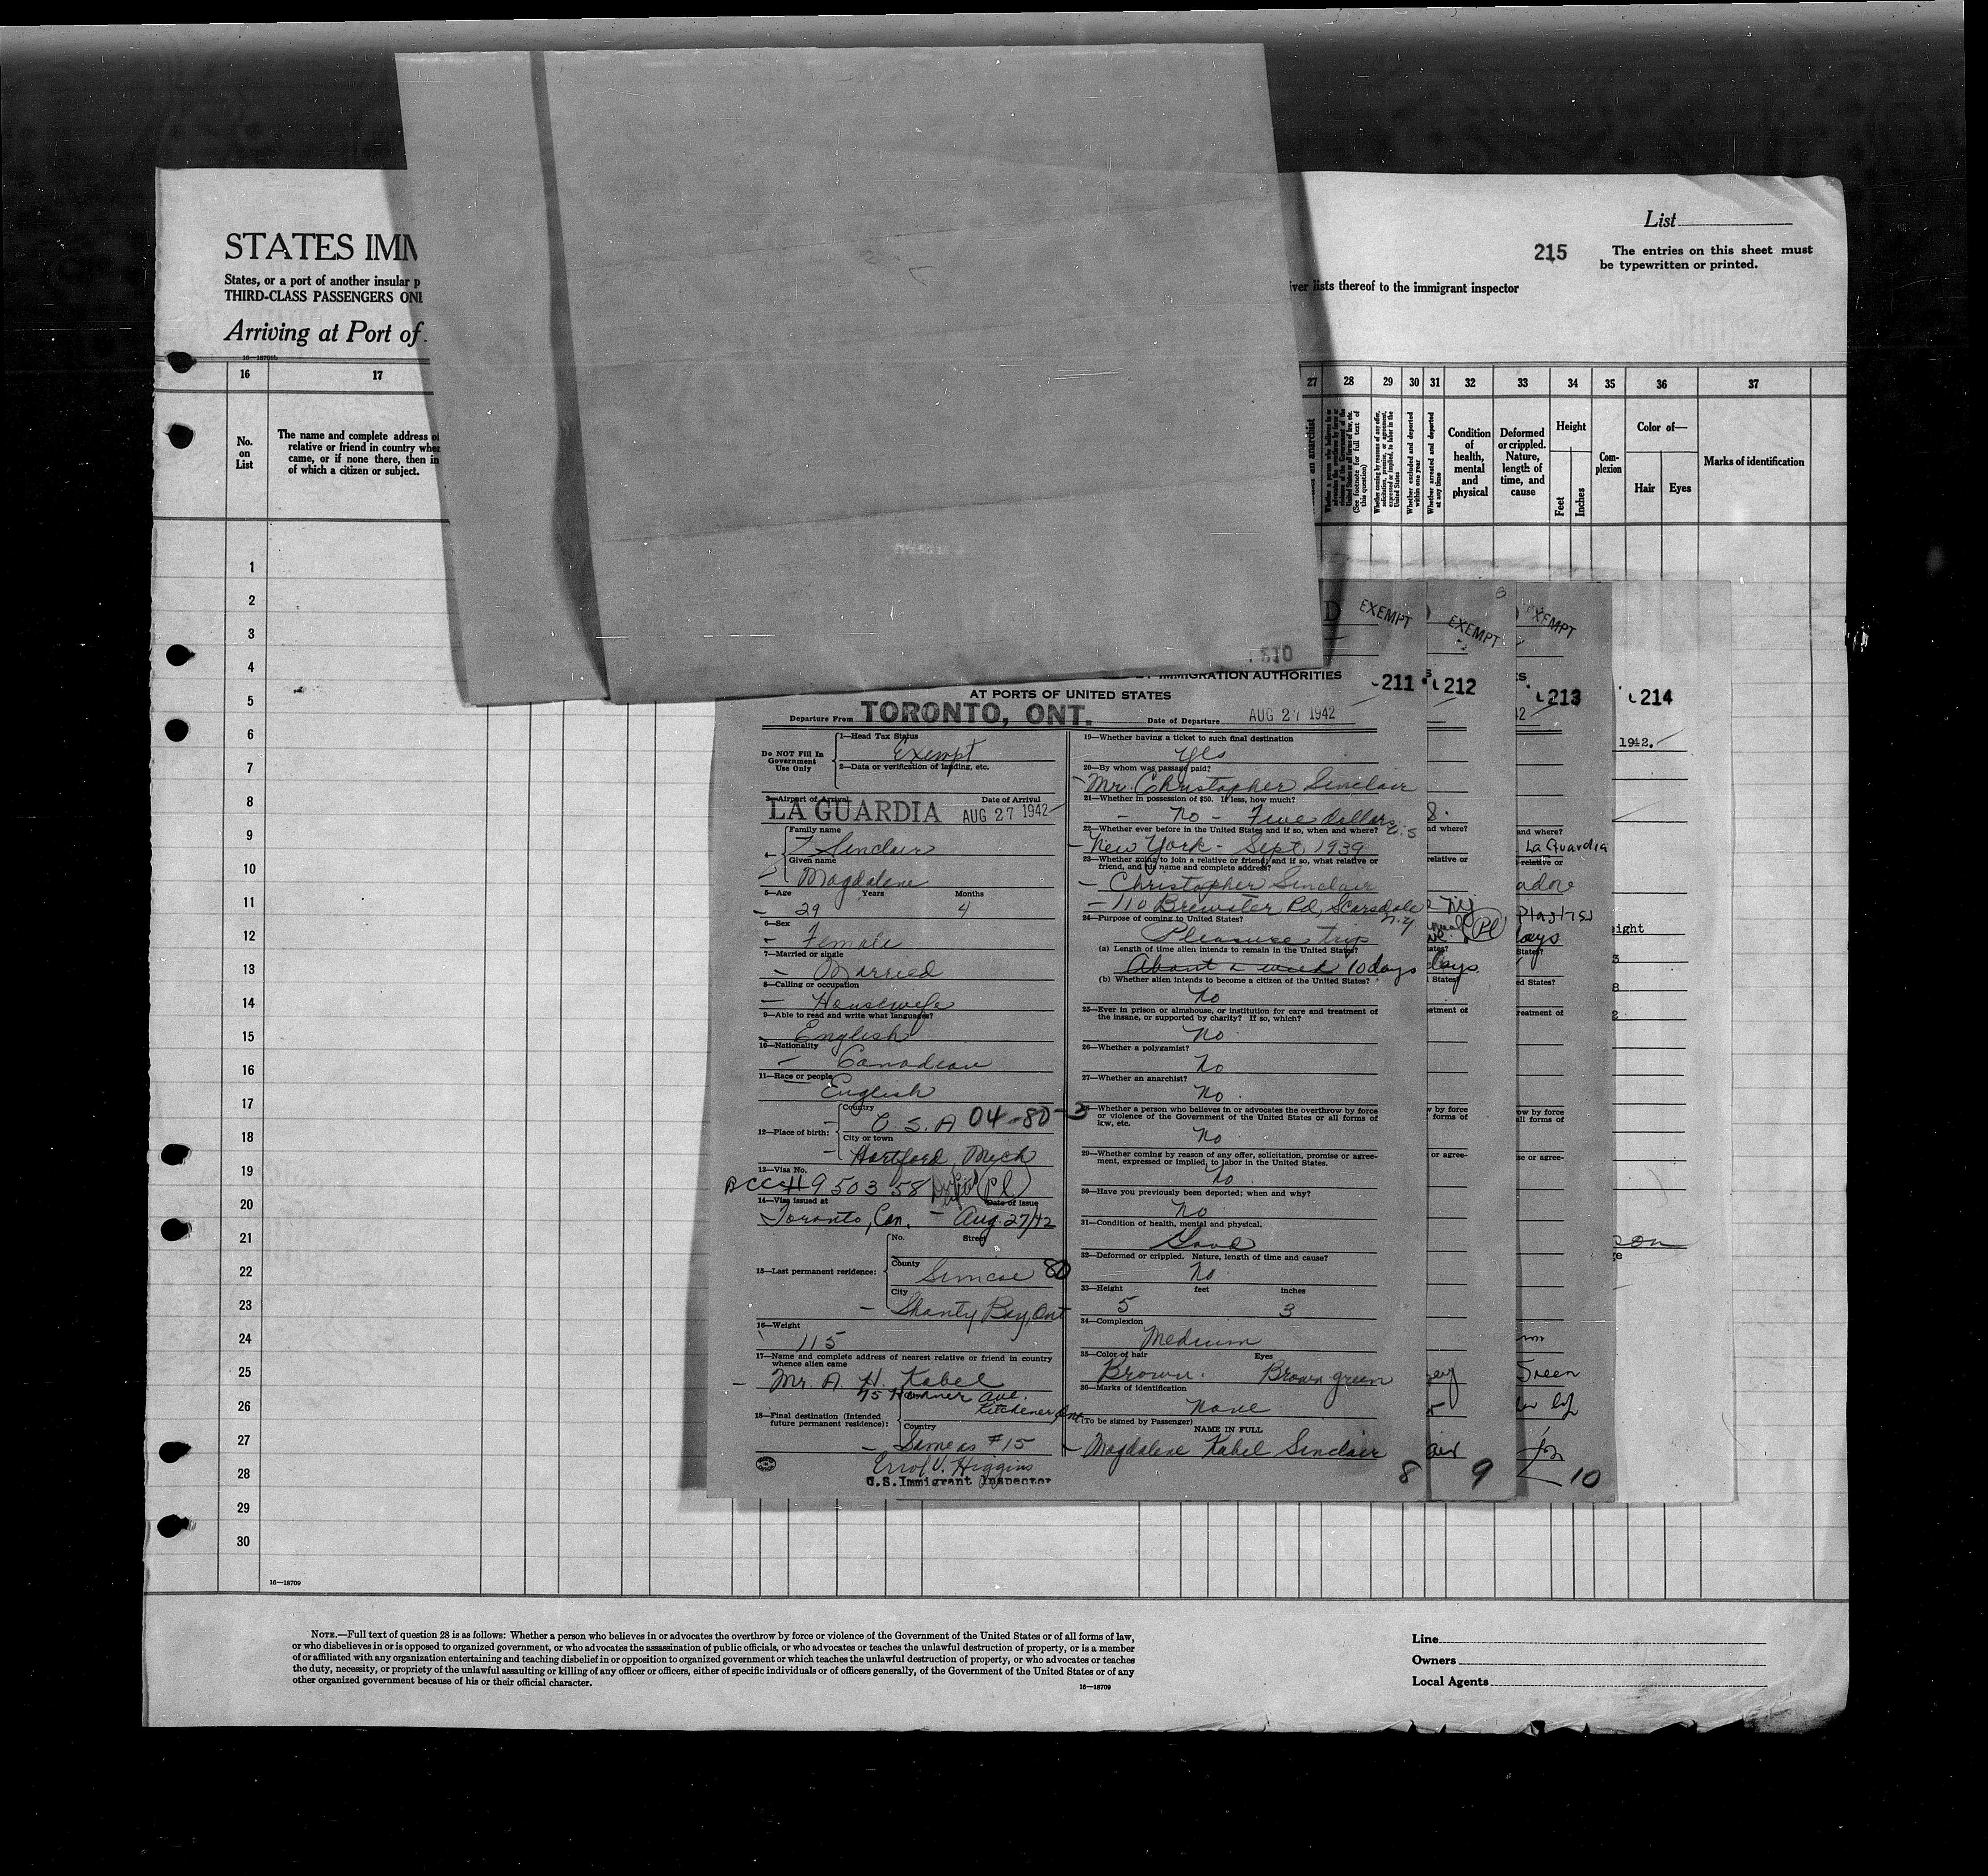 List
215
The entries on this sheet must
be typewritten or printed.
STATES IMM
States, or a port of another insular p
THIRD-CLASS PASSENGERS ONL
iver lists thereof to the immigrant inspector
Arriving at Port of
16—18709b
16 17 27 28 29 30 31 32 33 34 35 36 37
No.
on
List
The name and complete address of
relative or friend in country when
came, or if none there, then in
of which a citizen or subject.
an anarchist
Whether a person who believes in or
advocates the overthrow by force or
violence of the Government of the
United States or all forms of law, etc.
(See footnote for full text of
this question)
Whether coming by reason of any offer,
solicitation, promise, or agreement,
expressed or implied, to labor in the
United States
Whether excluded and deported
within one year
Whether arrested and deported
at any time
Condition
of
health,
mental
and
physical
Deformed
or crippled.
Nature,
length of
time, and
cause
Height
Feet
Inches
Com-
plexion
Color of—
Hair Eyes
Marks of identification
1
2
3
4
5
6
7
8
9
10
11
12
13
14
15
16
17
18
19
20
21
22
23
24
25
26
27
28
29
30
16—18709
D EXEMPT
EXEMPT
EXEMPT
IMMIGRATION AUTHORITIES
211
212
213
214
AT PORTS OF UNITED STATES
Departure From TORONTO, ONT. Date of Departure AUG 27 1942
Do NOT Fill In
Government
Use Only
1—Head Tax Status
Exempt
2—Data or verification of landing, etc.
3—Airport of Arrival Date of Arrival
LA GUARDIA AUG 27 1942
4—
Family name
Sinclair
Given name
Magdalene
5—Age Years Months
29 4
6—Sex
Female
7—Married or single
Married
8—Calling or occupation
Housewife
9—Able to read and write what languages?
English
10—Nationality
Canadian
11—Race or people
English
12—Place of birth:
Country
U. S. A 04-80-3
City or town
Hartford, Mich
13—Visa No.
503 58 Pl
14—Visa issued at Date of issue
Toronto, Can. - Aug. 27/42
15—Last permanent residence:
No. Street
County
Simcoe 80
City
Shanty Bay, Ont
16—Weight
115
17—Name and complete address of nearest relative or friend in country
whence alien came
Mr. A. H. Kabel
Ave.
Kitchener Ont
18—Final destination (Intended
future permanent residence):
Country
Same as #15
Errol V. Higgins
U.S. Immigrant Inspector
19—Whether having a ticket to such final destination
Yes
20—By whom was passage paid?
Mr. Christopher Sinclair
21—Whether in possession of $50. If less, how much?
- No - Five dollars U.S
22—Whether ever before in the United States and if so, when and where?
New York - Sept 1939
23—Whether going to join a relative or friend, and if so, what relative or
friend, and his name and complete address?
Christopher Sinclair
110 Brewster Rd, Scarsdale
N.Y
24—Purpose of coming to United States?
Pleasure trip
(a) Length of time alien intends to remain in the United States?
About a week 10 days
(b) Whether alien intends to become a citizen of the United States?
No
25—Ever in prison or almshouse, or institution for care and treatment of
the insane, or supported by charity? If so, which?
No
26—Whether a polygamist?
No
27—Whether an anarchist?
No
28—Whether a person who believes in or advocates the overthrow by force
or violence of the Government of the United States or all forms of
law, etc.
No
29—Whether coming by reason of any offer, solicitation, promise or agree-
ment, expressed or implied, to labor in the United States.
No
30—Have you previously been deported; when and why?
No
31—Condition of health, mental and physical.
Good
32—Deformed or crippled. Nature, length of time and cause?
No
33—Height feet inches
5 3
34—Complexion
Medium
35—Color of hair Eyes
Brown. Brown green
36—Marks of identification
None
(To be signed by Passenger)
NAME IN FULL
Magdalene Kabel Sinclair
8
9
10
nd where?
relative or
N.Y
Pl
days
eatment of
w by force
forms of
or agree-
and where?
La Guardia
relative or
days
State?
ed States?
reatment of
ow by force
all forms of
se or agree-
Green
1942.
eight
NOTE.—Full text of question 28 is as follows: Whether a person who believes in or advocates the overthrow by force or violence of the Government of the United States or of all forms of law,
or who disbelieves in or is opposed to organized government, or who advocates the assassination of public officials, or who advocates or teaches the unlawful destruction of property, or is a member
of or affiliated with any organization entertaining and teaching disbelief in or opposition to organized government or which teaches the unlawful destruction of property, or who advocates or teaches
the duty, necessity, or propriety of the unlawful assaulting or killing of any officer or officers, either of specific individuals or of officers generally, of the Government of the United States or of any
other organized government because of his or their official character.
16—18709
Line
Owners
Local Agents